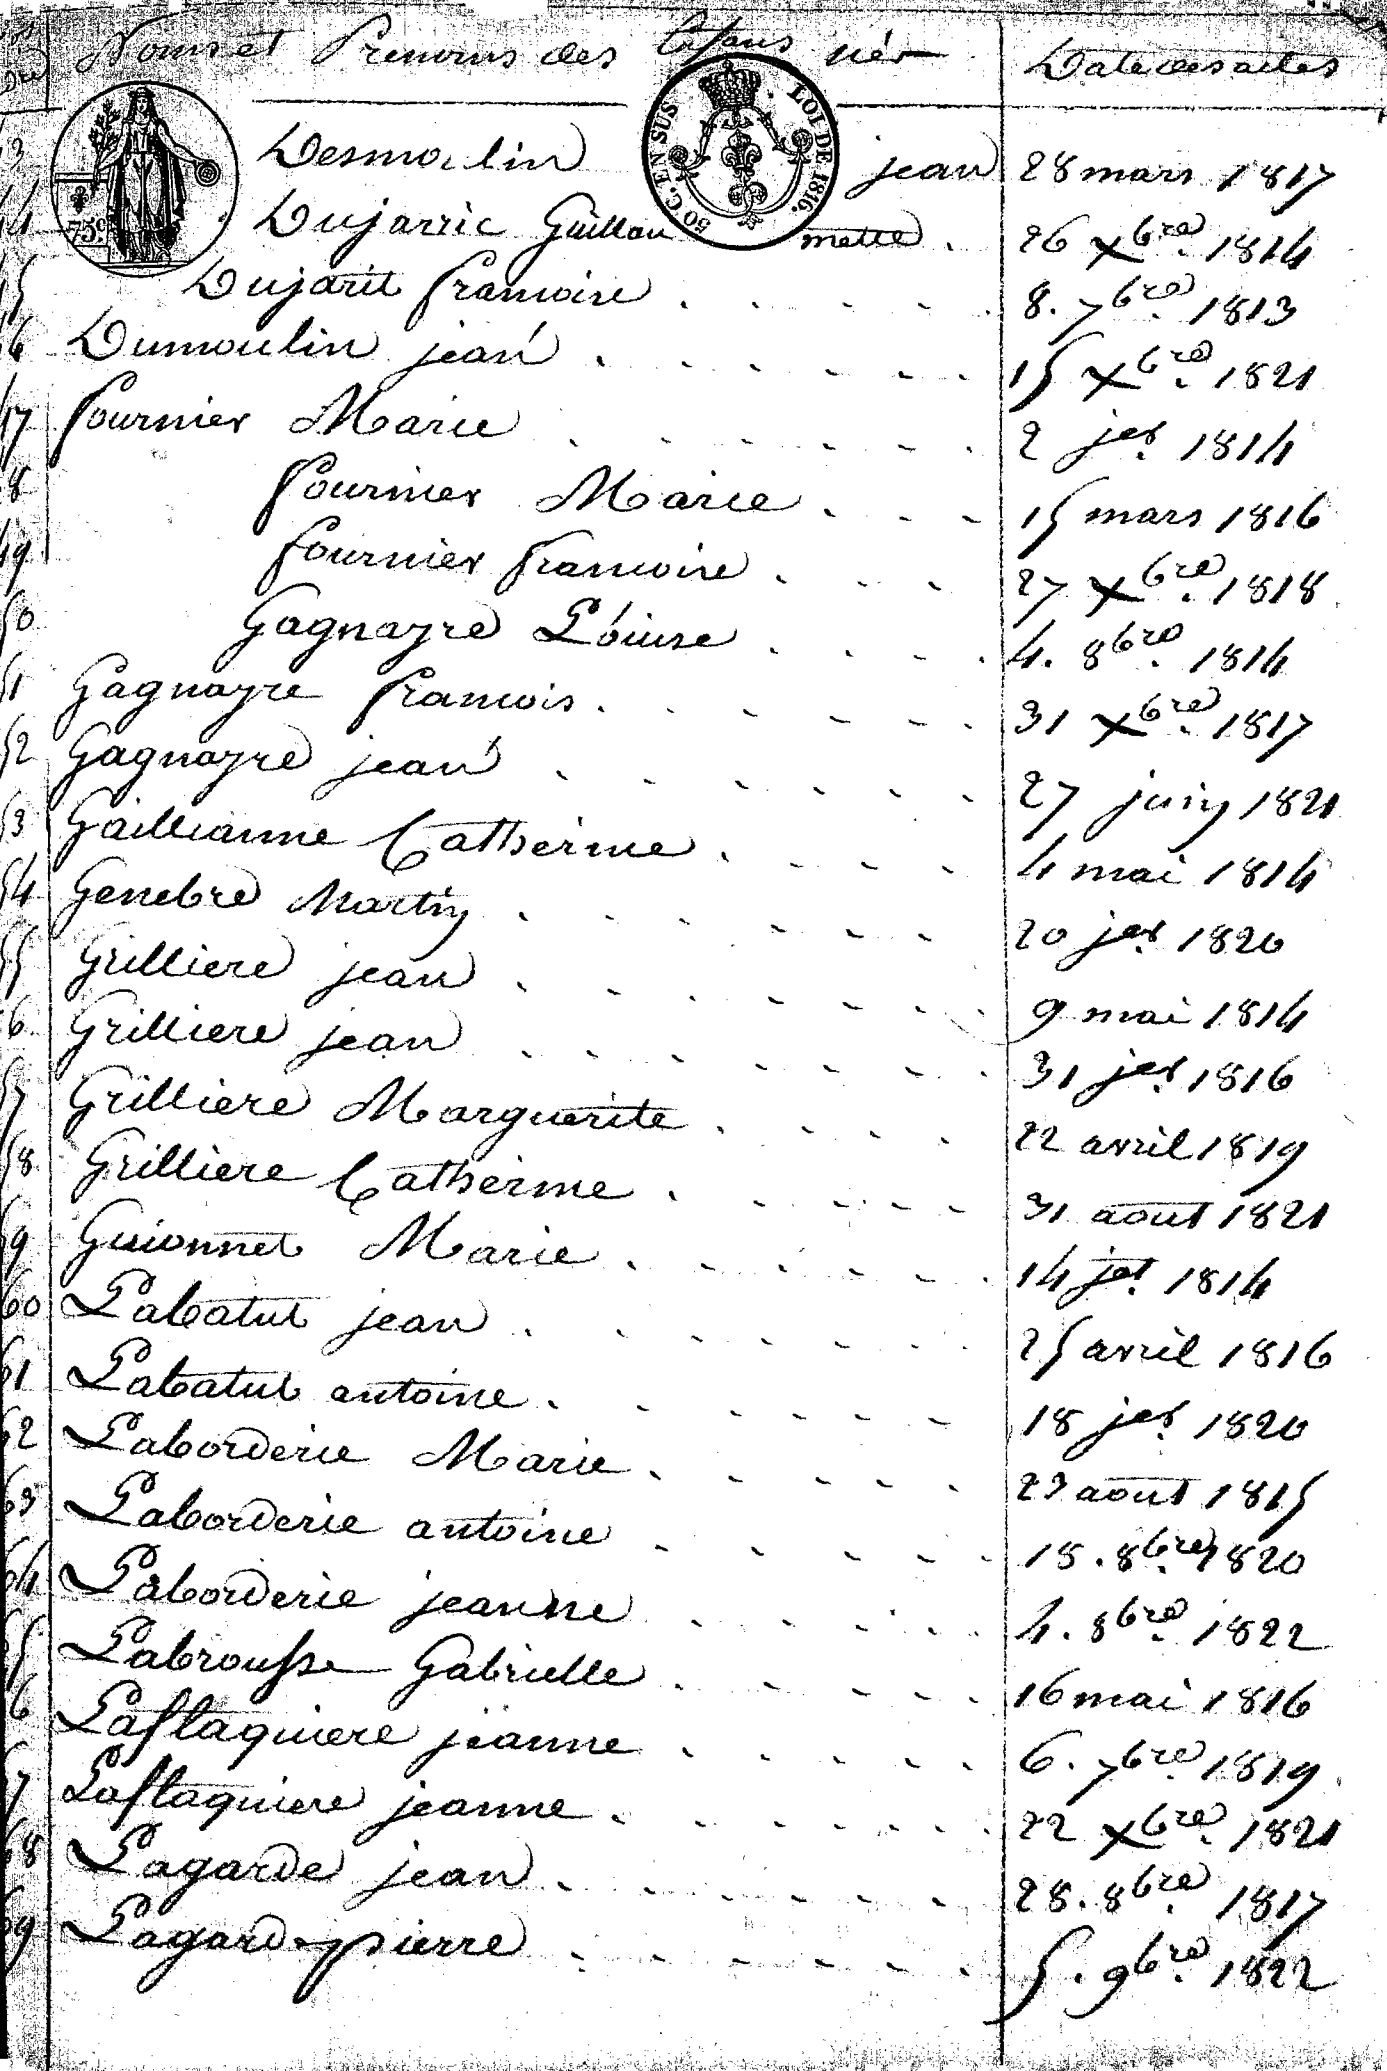 Noms et Prenoms des Enfans nés Date des actes
75c.
50 C. EN SUS LOI DE 1816.
43 Desmoulin jean 28 mars 1817
44 Dujarric Guillaumette 26 Xbre 1814
45 Dujarit francoise 8. 7bre 1813
46 Dumoulin jean 15 Xbre 1821
47 fournier Marie 2 jer 1814
48 fournier Marie 15 mars 1816
49 fournier francoise 27 Xbre 1818
50 Gagnayre Louise 4. 8bre 1814
51 Gagnayre francois 31 Xbre 1817
52 Gagnayre jean 27 juin 1821
53 Gaillianne Catherine 4 mai 1814
54 Genebre Martin 20 jer 1820
55 Grilliere jean 9 mai 1814
56 Grilliere jean 31 jer 1816
57 Grilliere Marguerite 22 avril 1819
58 Grilliere Catherine 31 aout 1821
59 Guionnet Marie 14 jet 1814
60 Labatut jean 25 avril 1816
61 Labatut antoine 18 jer 1820
62 Laborderie Marie 23 aout 1815
63 Laborderie antoine 18. 8bre 1820
64 Laborderie jeanne 4. 8bre 1822
65 Labrousse Gabrielle 16 mai 1816
66 Laflaquiere jeanne 6. 7bre 1819
67 Laflaquiere jeanne 22 Xbre 1821
68 Lagarde jean 28. 8bre 1817
69 Lagarde pierre 5. 9bre 1822